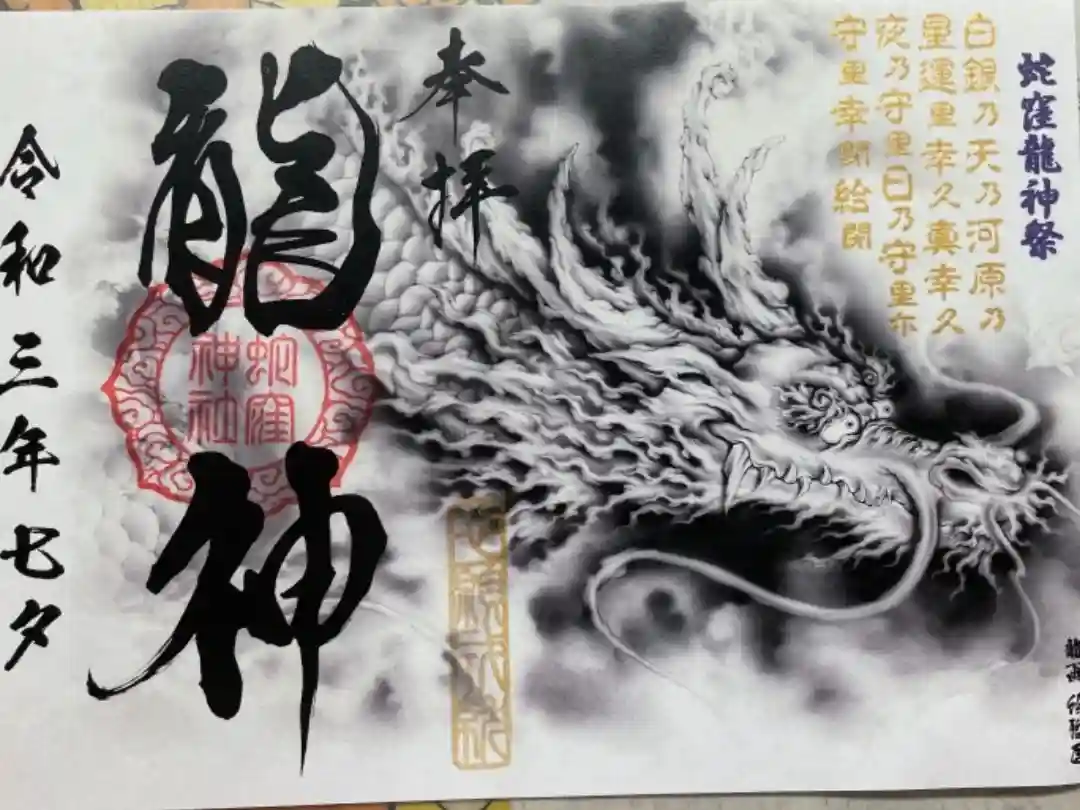 蛇窪龍神祭
白銀乃天乃河原乃
星運里幸久真幸久
夜乃守里日乃守里尓
守里幸閇給閇
奉拝
龍神
蛇窪
神社
令和三年七夕